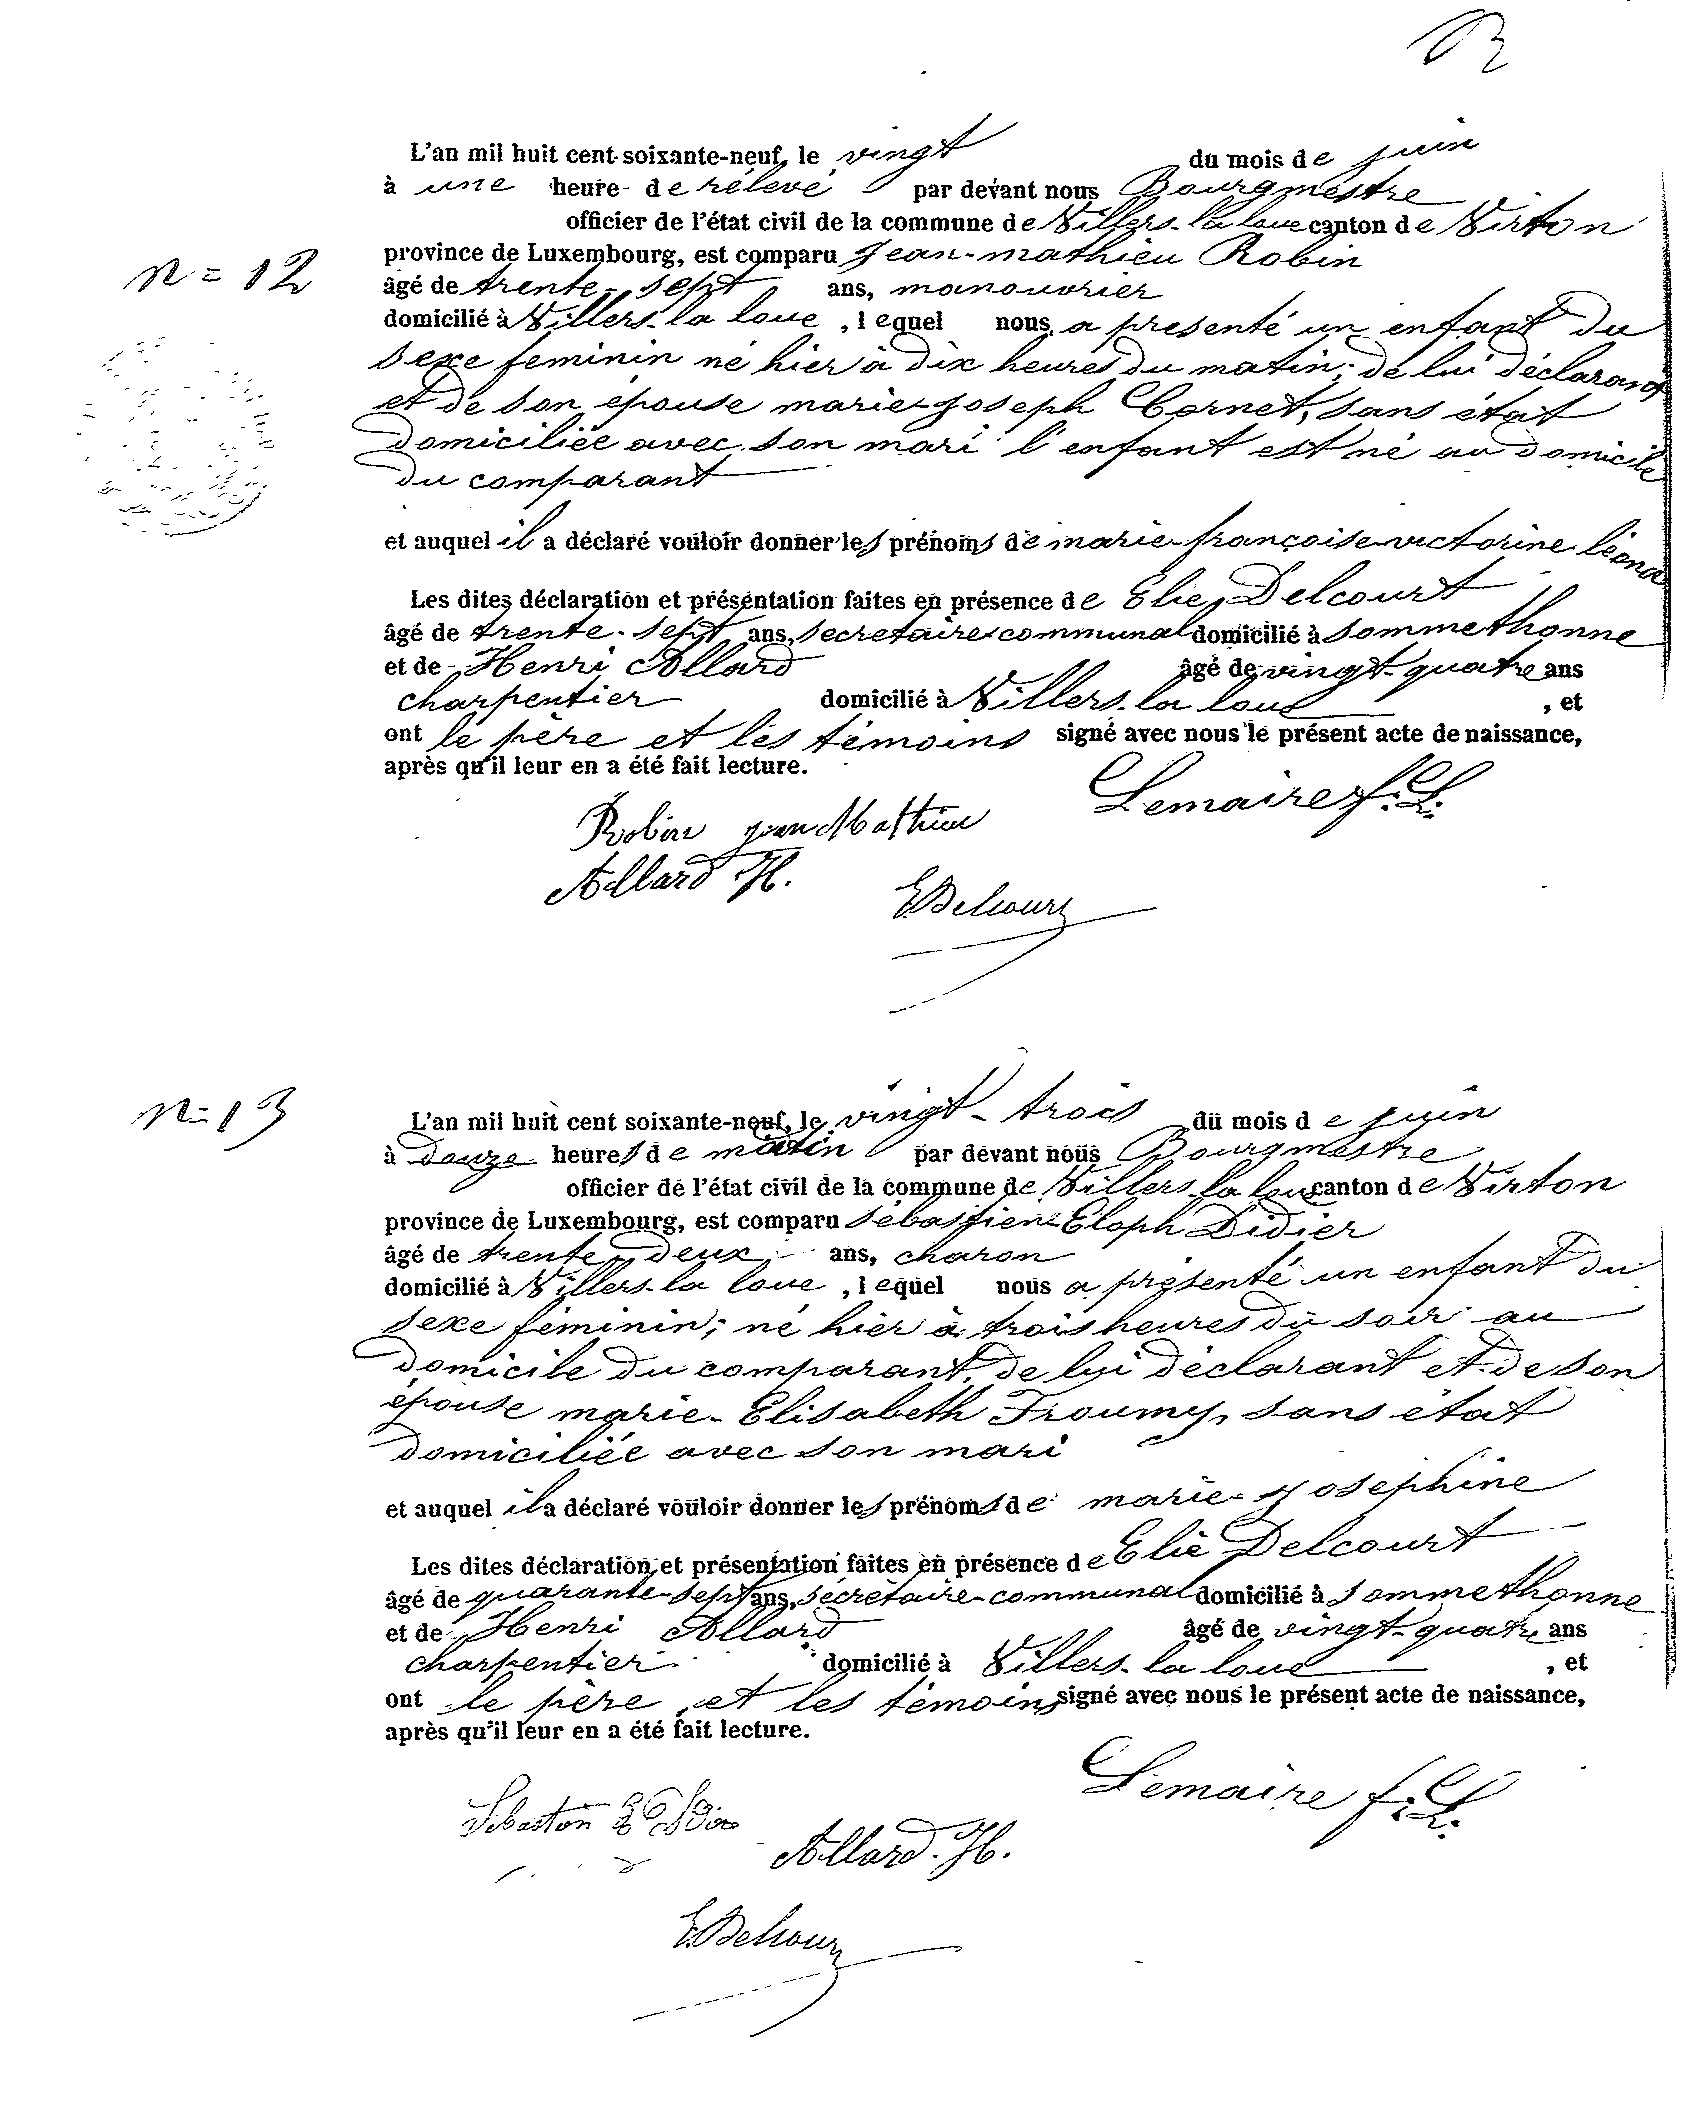 L'an mil huit cent soixante-neuf, le vingt du mois de juin
à une heure de rélevé par devant nous Bourgmestre
officier de l'état civil de la commune de Villers-la loue canton de Virton
province de Luxembourg, est comparu Jean-mathieu Robin
n = 12
âgé de trente-sept ans, manouvrier
domicilié à Villers-la loue, lequel nous a présenté un enfant du
sexe feminin né hier à dix heures du matin; de lui déclarant
et de son épouse marie-joseph Cornet, sans état
domiciliée avec son mari l'enfant est né au domicile
du comparant
et auquel il a déclaré vouloir donner les prénoms de marie-françoise-victorine
Les dites déclaration et présentation faites en présence de Elie Delcourt
âgé de trente-sept ans, secretaire communal domicilié à Sommethonne
et de Henri Allard âgé de vingt-quatre ans
charpentier domicilié à Villers-la loue, et
ont le père et les témoins signé avec nous le présent acte de naissance,
après qu'il leur en a été fait lecture.
Lemaire f.L.
Robin jean Mathieu
Allard H.
E Delcourt
n = 13
L'an mil huit cent soixante-neuf, le vingt-trois du mois de juin
à douze heures de matin par devant nous Bourgmestre
officier de l'état civil de la commune de Villers-la loue canton de Virton
province de Luxembourg, est comparu Sébastien-Eloph Didier
âgé de trente-deux ans, charon
domicilié à Villers-la loue, lequel nous a présenté un enfant du
sexe féminin; né hier à trois heures du soir au
domicile du comparant, de lui déclarant et de son
épouse marie-Elisabeth Froumy, sans état
domiciliée avec son mari
et auquel il a déclaré vouloir donner les prénoms de marie-josephine
Les dites déclaration et présentation faites en présence de Elie Delcourt
âgé de quarante-sept ans, sécrétaire-communal domicilié à Sommethonne
et de Henri Allard âgé de vingt-quatre ans
charpentier domicilié à Villers-la loue, et
ont le père et les témoins signé avec nous le présent acte de naissance,
après qu'il leur en a été fait lecture.
Lemaire f.L.
Allard. H.
E Delcourt